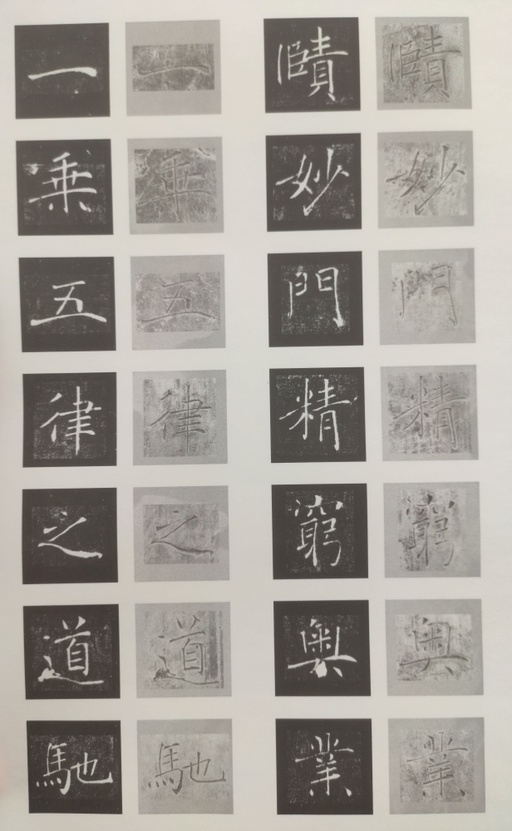 賾妙門精窮奥業
賾妙門精窮奥業
一乗五律之道馳
一乗五律之道馳